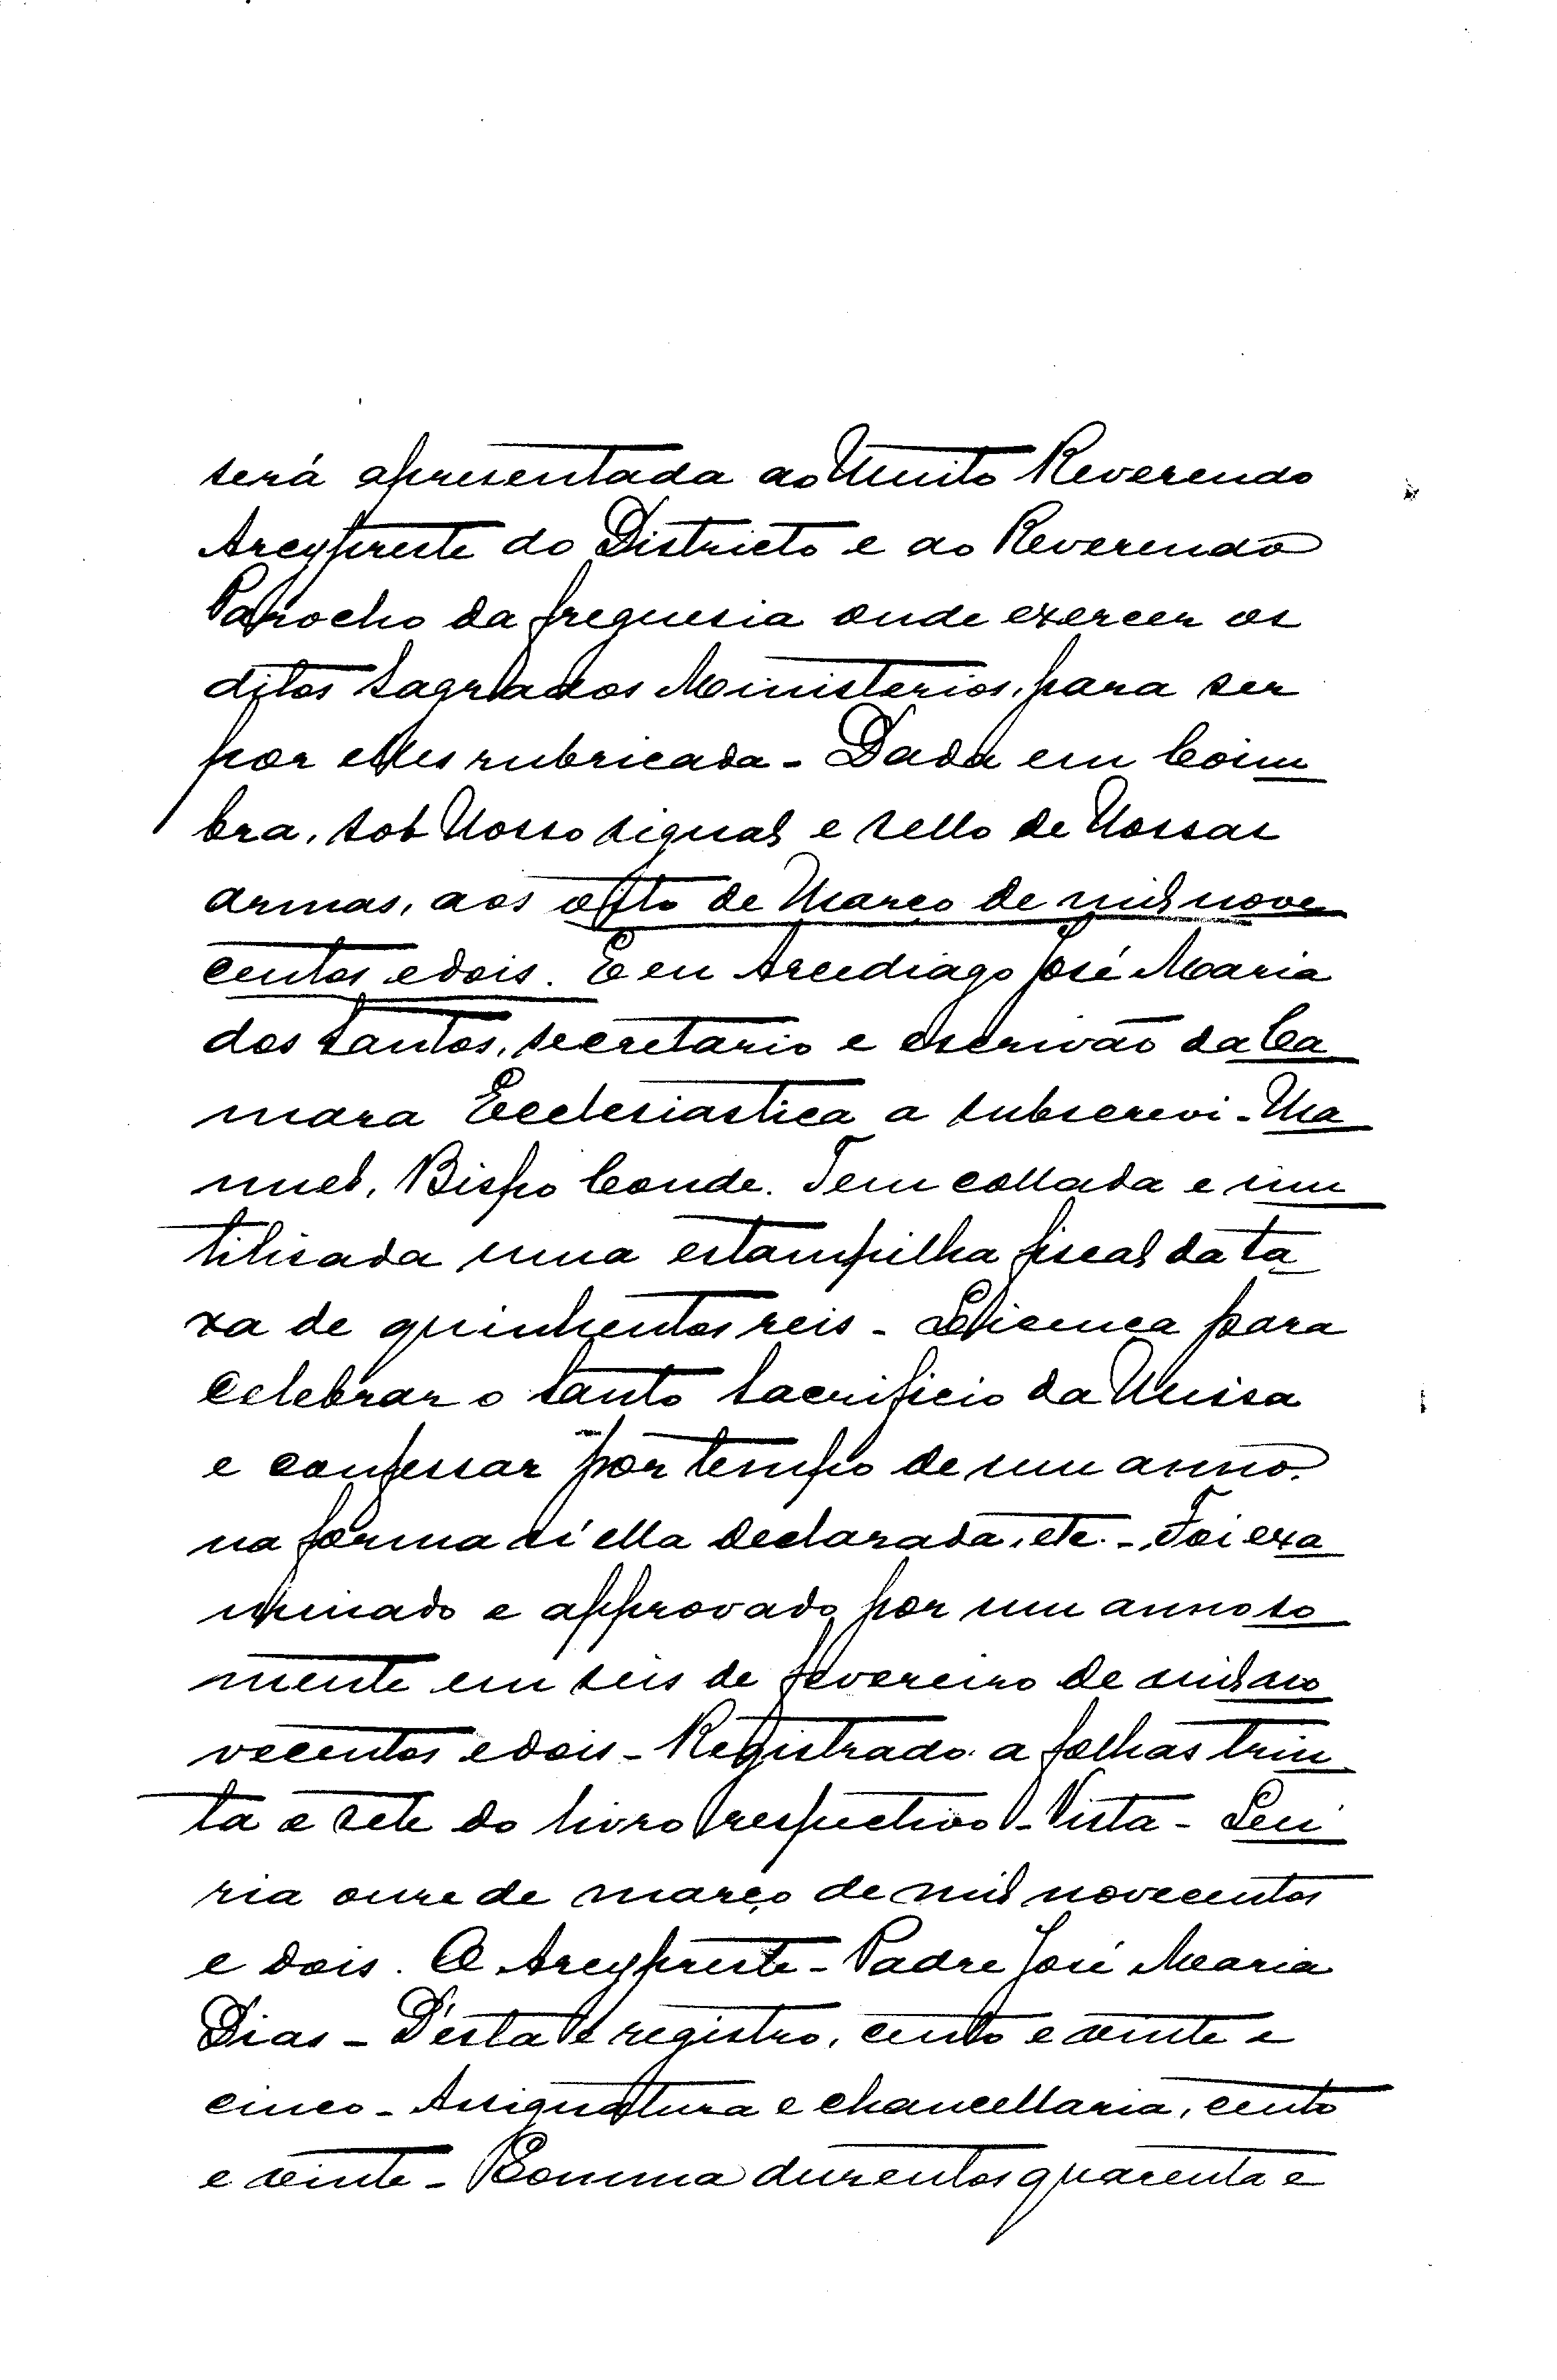 será apresentada ao Muito Reverendo
Arcypreste do Districto e ao Reverendo
Parocho da freguesia onde exercer os
ditos Sagrados Ministerios, para ser
por elles rubricada - Dada em Coim
bra, sob Nosso signal e sello de Nossas
armas, aos oito de Março de mil nove
centos e dois. E eu Arcediago José Maria
dos Santos, secretario e escrivão da Ca
mara Ecclesiastica a subscrevi - Ma
nuel, Bispo Conde. Tem collada e inu
tilisada uma estampilha fiscal da ta
xa de quinhentos reis - Licença para
celebrar o Santo Sacrificio da Missa
e confessar por tempo de um anno.
na forma n'ella declarada, etc. - Foi exa
minado e approvado por um anno so
mente em seis de fevereiro de mil no
vecentos e dois - Registrado a folhas trin
ta e sete do livro respectivo - Vista - Lei
ria onze de março de mil novecentos
e dois. O Arcypreste - Padre José Maria
Dias - D'esta e registro, cento e vinte e
cinco - Assignatura e chancellaria, cento
e vinte - Somma duzentos quarenta e